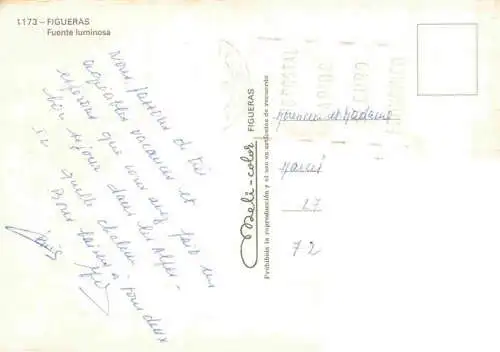 1173 – FIGUERAS
Fuente luminosa
Nous passons de très
agréables vacances et
espérons que vous avez fait un
bon séjour dans les Alpes -
Ici quelle chaleur
Bons baisers à tous deux
Meli-color FIGUERAS
Prohibida la reproducción y el uso en artículos de recuerdo
Monsieur et Madame
27
72